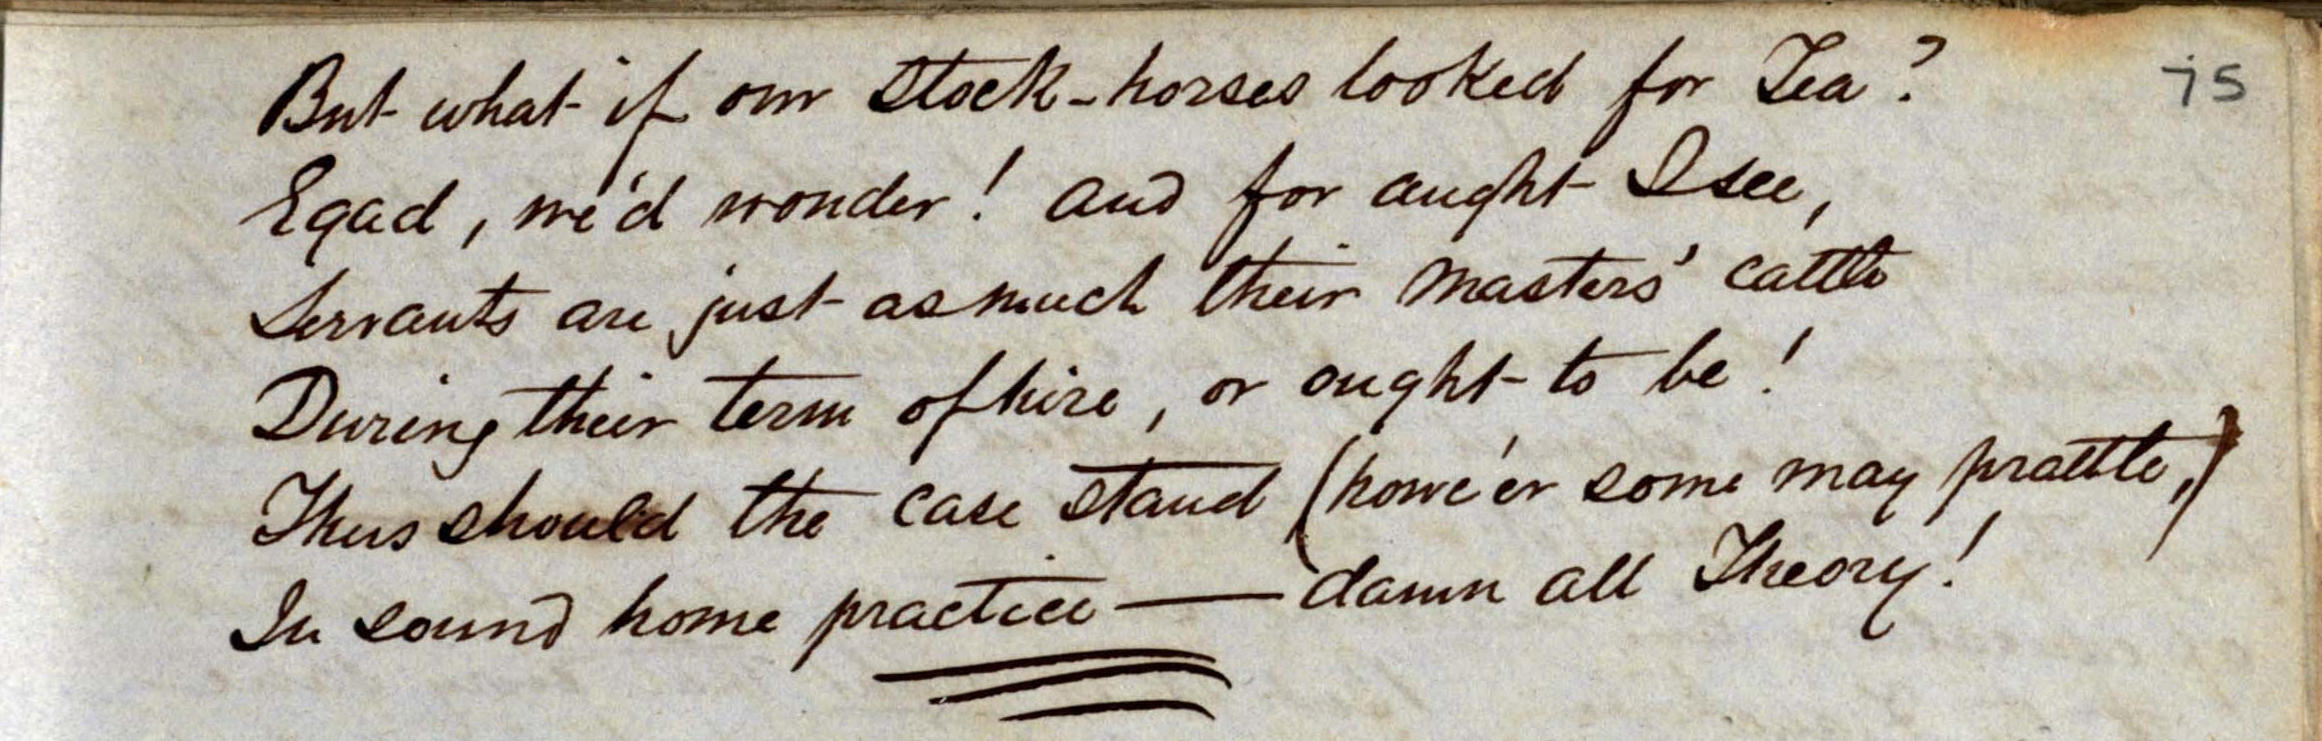 But what if our Stock-horses looked for Tea? 75
Egad, we'd wonder! and for aught I see,
Servants are just as much their Masters' cattle
During their term of hire, or ought to be!
Thus should the case stand (howe'er some may prattle,)
In sound home practice — damn all Theory!